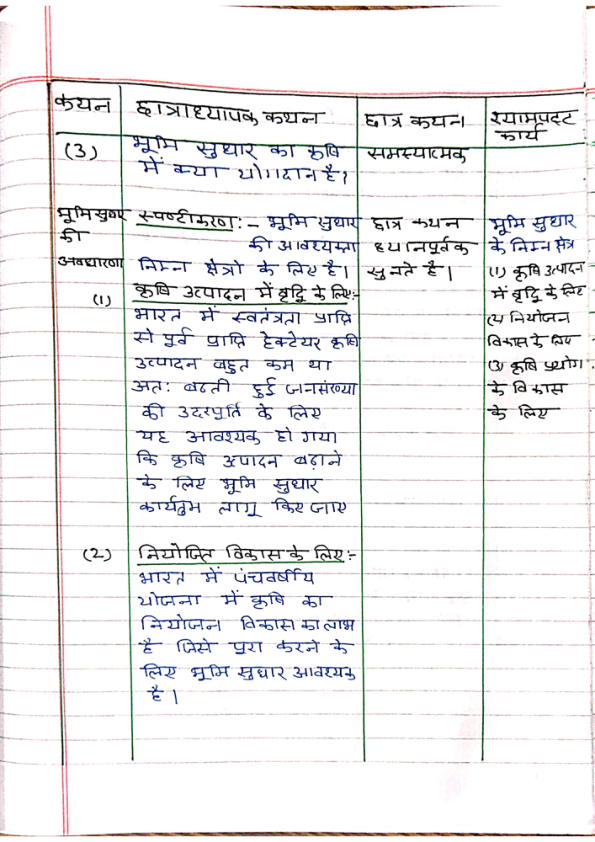 कथन छात्राध्यापक कथन छात्र कथन श्यामपट्ट कार्य
(3) भूमि सुधार का कृषि में क्या योगदान है। समस्यात्मक
भूमि सुधार की अवधारणा
स्पष्टीकरण:- भूमि सुधार
की आवश्यकता
निम्न क्षेत्रों के लिए है।
छात्र कथन
ध्यानपूर्वक
सुनते है।
भूमि सुधार
के निम्न क्षेत्र
(1) कृषि उत्पादन
में वृद्धि के लिए
(2) नियोजन
विकास के लिए
(3) कृषि प्रयोग
के विकास
के लिए
(1) कृषि उत्पादन में वृद्धि के लिए:-
भारत में स्वतंत्रता प्राप्ति
से पूर्व प्राप्ति हेक्टेयर कृषि
उत्पादन बहुत कम था
अत: बढती हुई जनसंख्या
की उदरपुर्ति के लिए
यह आवश्यक हो गया
कि कृषि उत्पादन बढ़ाने
के लिए भूमि सुधार
कार्यक्रम लागू किए जाए
(2) नियोजित विकास के लिए:-
भारत में पंचवर्षीय
योजना में कृषि का
नियोजन विकास का लाभ
है जिसे पुरा करने के
लिए भूमि सुधार आवश्यक
है।